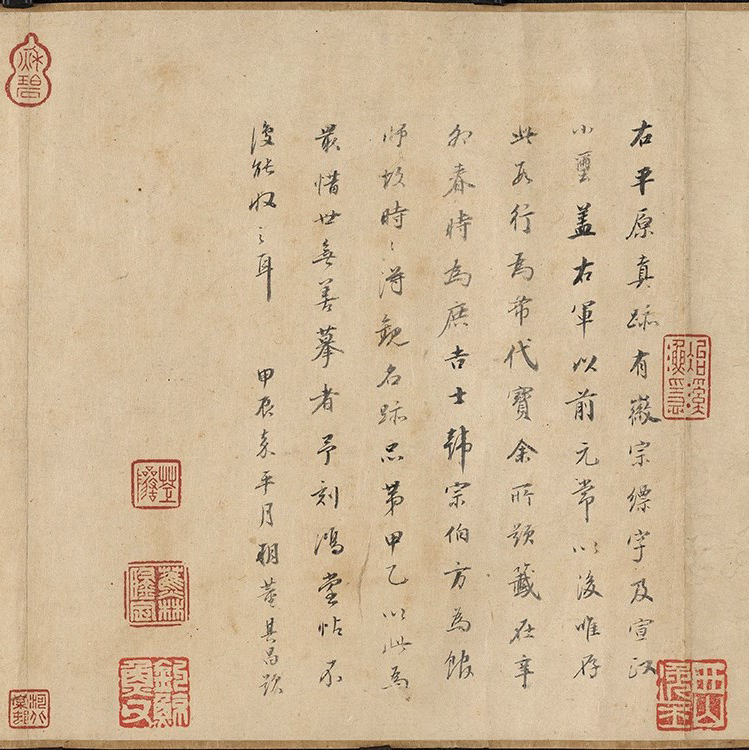 冶溪漁隱
右平原真跡有徽宗縹字及宣
小璽盖右軍以前元常以後唯存
此數行為希代寶余所題籤在辛
卯春時為庶吉士韓宗伯方為館
師故時〻得觀名跡品第甲乙以此為
最惜世無善摹者予刻鴻堂帖不
復能收之耳 甲辰嘉平月朔董其昌題
蕉林